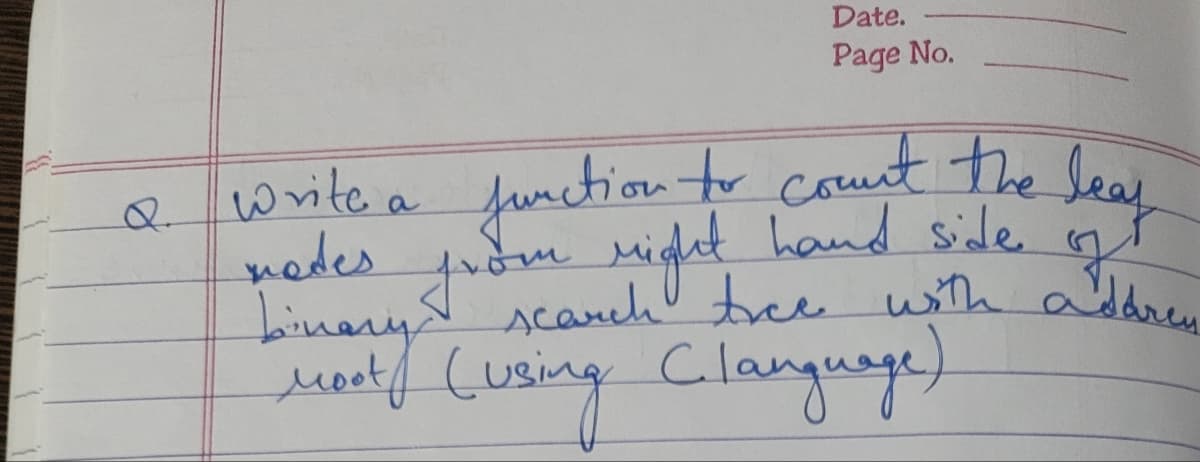 Date.
Page No.
Q. Write a function to count the leaf
nodes from right hand side of
binary search tree with address
root (using C language)